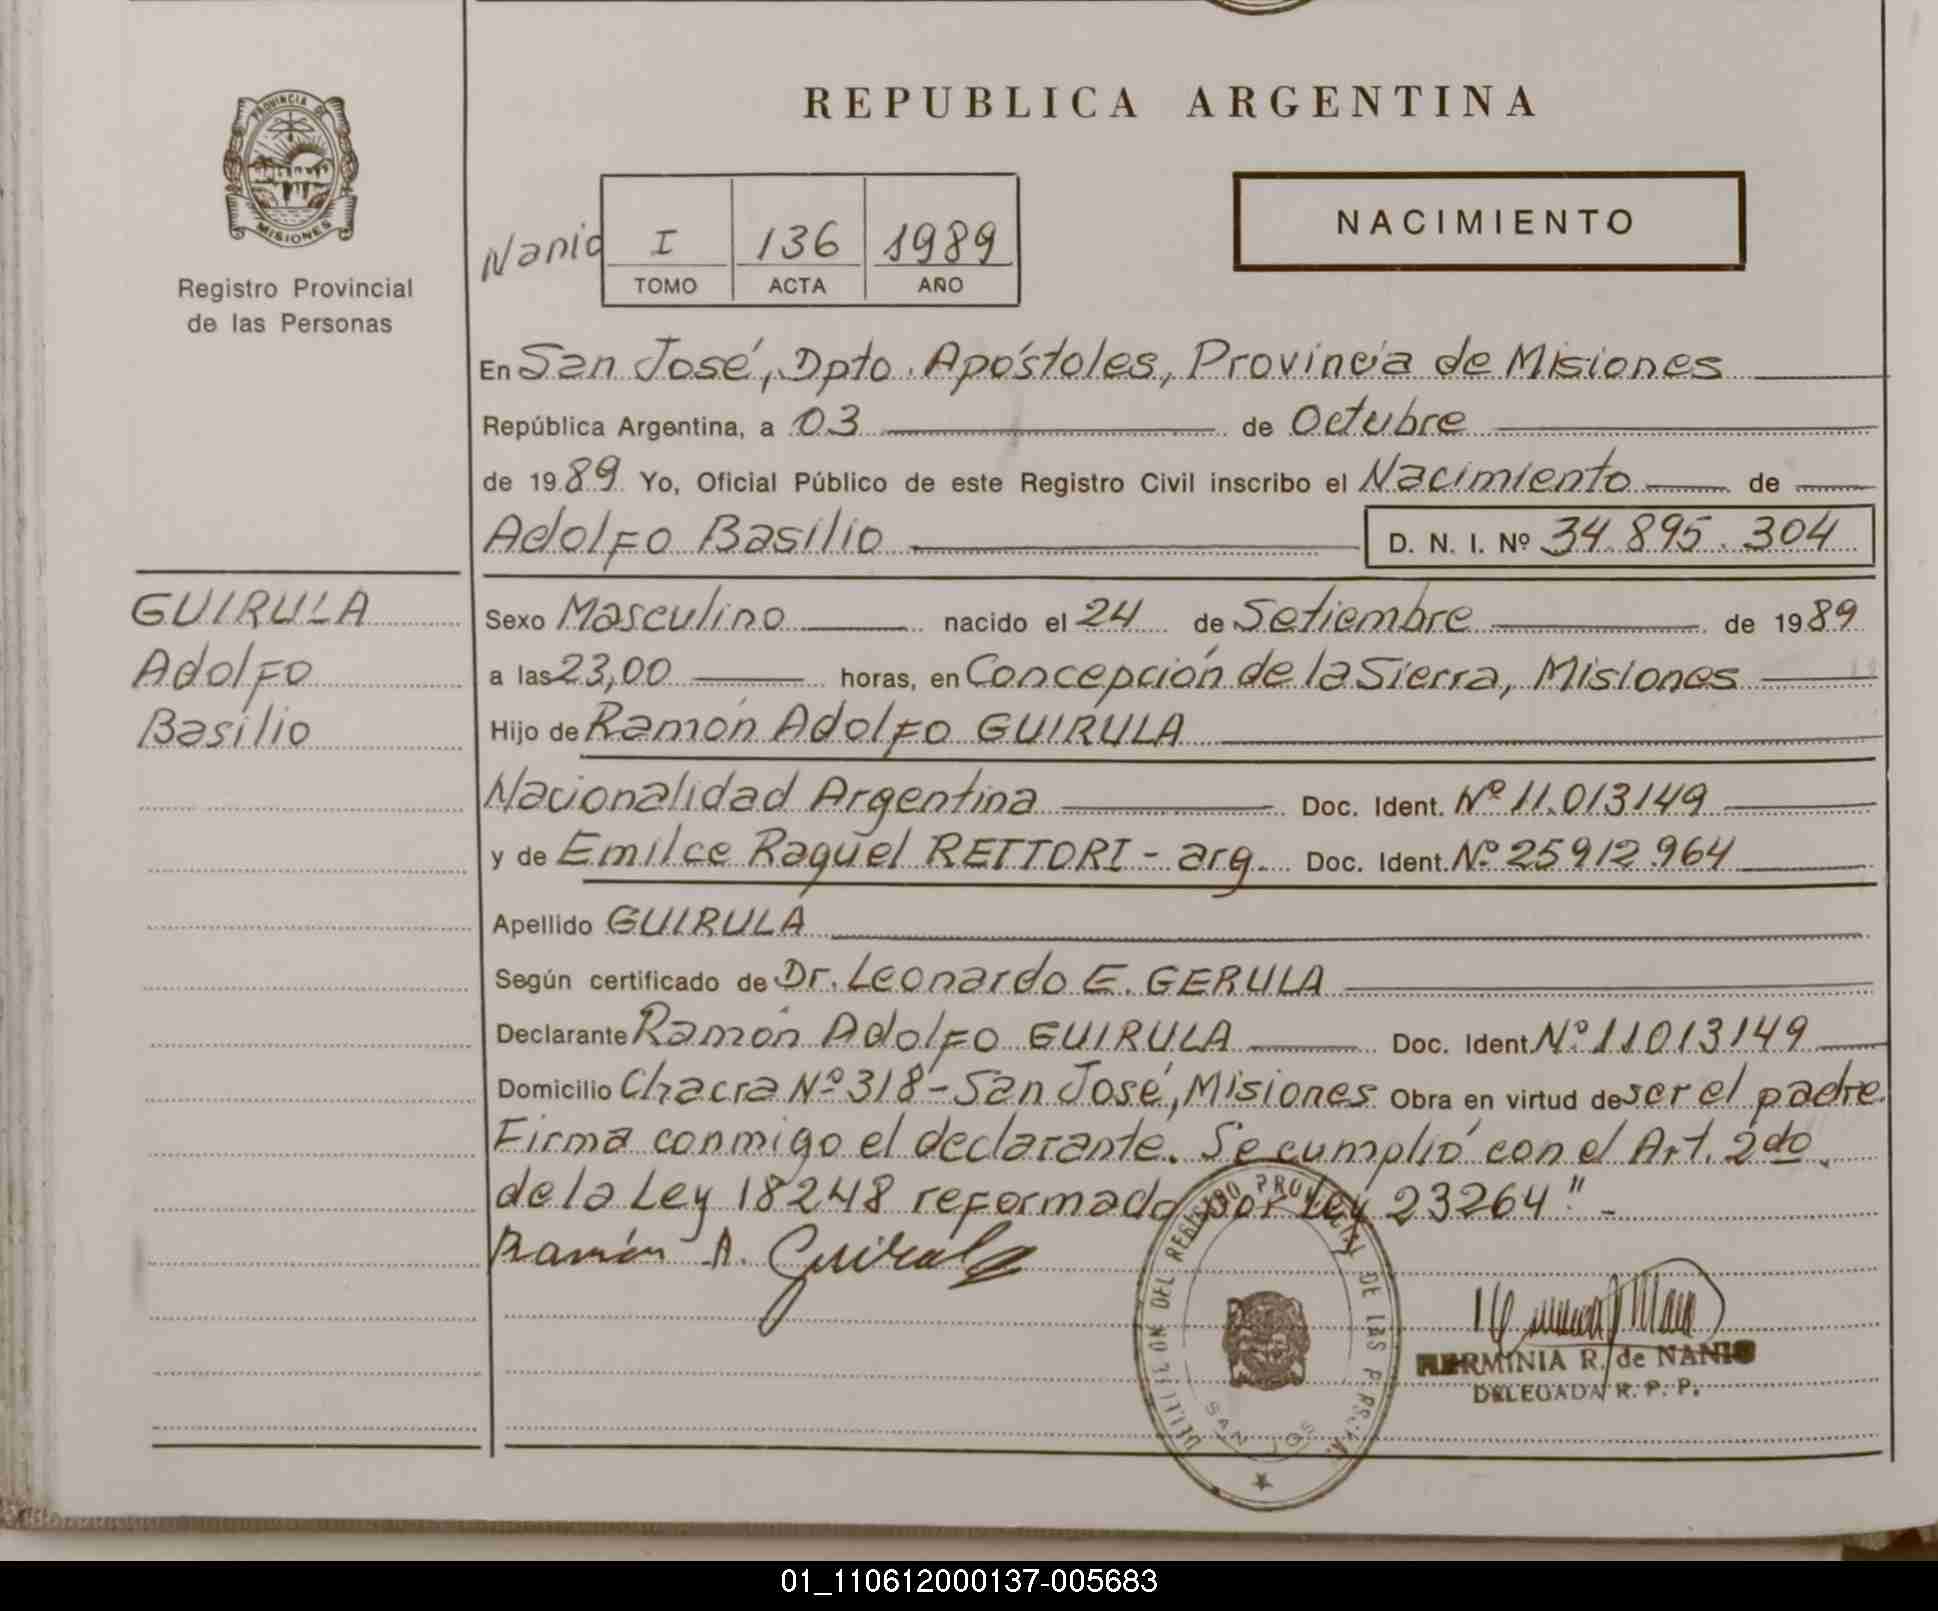 REPUBLICA ARGENTINA
PROVINCIA DE
MISIONES
Registro Provincial
de las Personas
NACIMIENTO
I 136 1989
TOMO ACTA AÑO
En San José, Dpto. Apóstoles, Provincia de Misiones
República Argentina, a 03 de Octubre
de 1989 Yo, Oficial Público de este Registro Civil inscribo el Nacimiento de
Adolfo Basilio D. N. I. Nº 34.895.304
GUIRULA
Adolfo
Basilio
Sexo Masculino nacido el 24 de Setiembre de 1989
a las 23,00 horas, en Concepción de la Sierra, Misiones
Hijo de Ramón Adolfo GUIRULA
Nacionalidad Argentina Doc. Ident. Nº 11.013149
y de Emilce Raquel RETTORI - arg. Doc. Ident. Nº 25912.964
Apellido GUIRULA
Según certificado de Dr. Leonardo E. GERULA
Declarante Ramón Adolfo GUIRULA Doc. Ident. Nº 11013149
Domicilio Chacra Nº 318 - San José, Misiones Obra en virtud de ser el padre.
Firma conmigo el declarante. Se cumplió con el Art. 2do.
de la Ley 18248 reformado por Ley 23264" -
Ramón A. Guirula
DEL REGISTRO PROVINCIAL DE LAS
SAN JOSE
HERMINIA R. de NANIO
DELEGADA R. P. P.
01_110612000137-005683